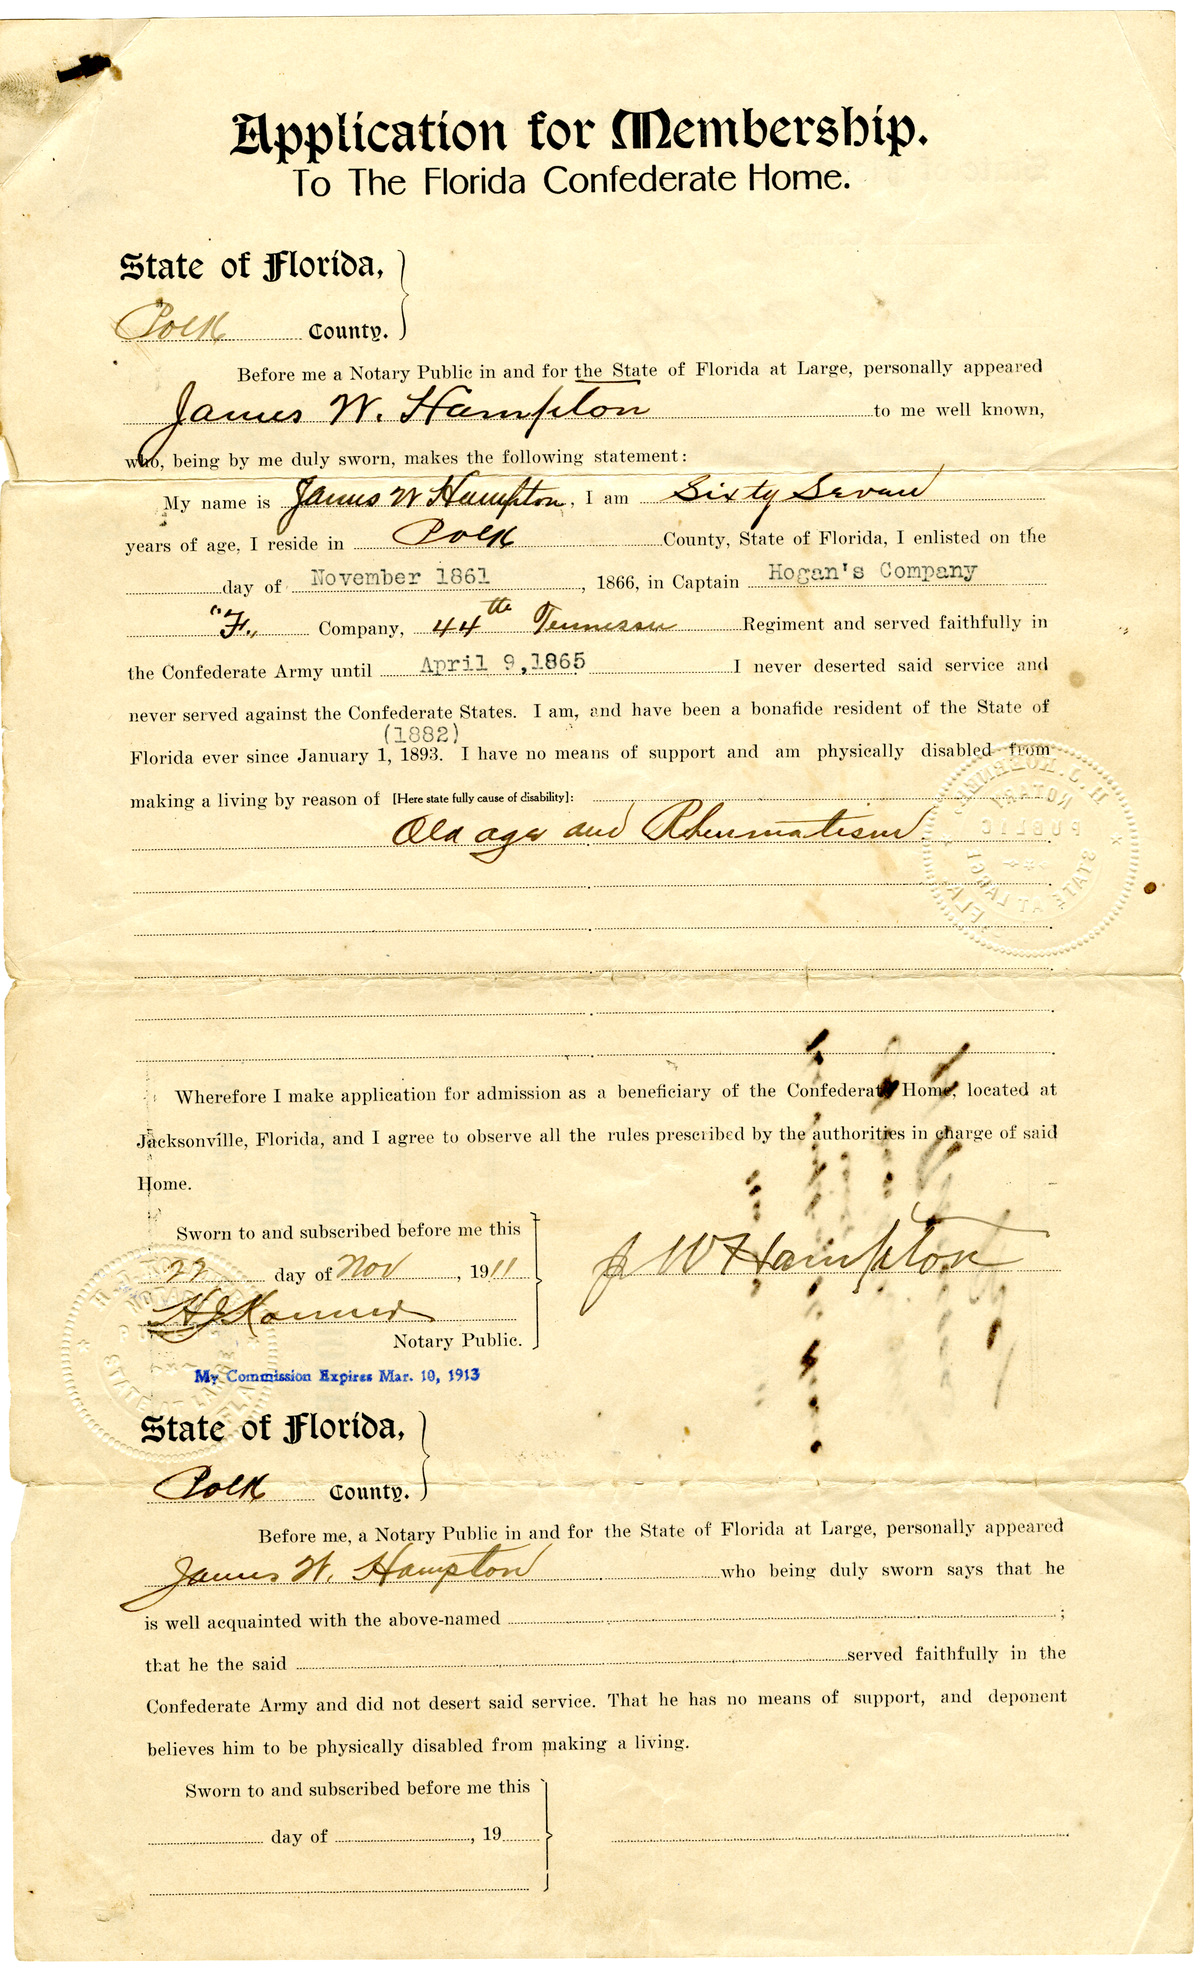 Application for Membership.
To The Florida Confederate Home.
State of Florida,
Polk County.
Before me a Notary Public in and for the State of Florida at Large, personally appeared
James W. Hampton to me well known,
who, being by me duly sworn, makes the following statement:
My name is James W Hampton, I am Sixty Seven
years of age, I reside in Polk County, State of Florida, I enlisted on the
day of November 1861, 1866, in Captain Hogan's Company
"F" Company, 44th Tennessee Regiment and served faithfully in
the Confederate Army until April 9,1865 I never deserted said service and
never served against the Confederate States. I am, and have been a bonafide resident of the State of
(1882)
Florida ever since January 1, 1893. I have no means of support and am physically disabled from
making a living by reason of [Here state fully cause of disability]:
Old age and Rheumatism.
NOTARY
PUBLIC
STATE AT LARGE
FLA
Wherefore I make application for admission as a beneficiary of the Confederate Home, located at
Jacksonville, Florida, and I agree to observe all the rules prescribed by the authorities in charge of said
Home.
Sworn to and subscribed before me this
22 day of Nov, 1911
J W Hampton
Notary Public.
My Commission Expires Mar. 10, 1913
State of Florida,
Polk County.
Before me, a Notary Public in and for the State of Florida at Large, personally appeared
James W. Hampton who being duly sworn says that he
is well acquainted with the above-named ;
that he the said served faithfully in the
Confederate Army and did not desert said service. That he has no means of support, and deponent
believes him to be physically disabled from making a living.
Sworn to and subscribed before me this
day of , 19